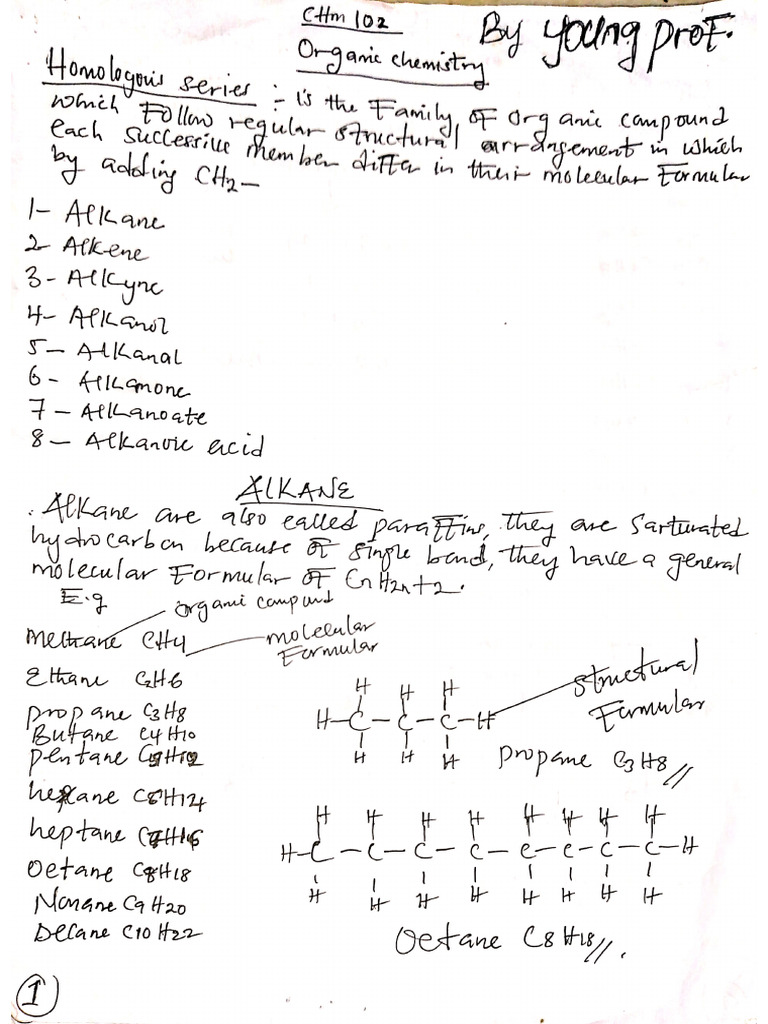 CHm 102
By Young prof.
Organic chemistry
Homologous series :- is the Family of organic compound
which Follow regular structural arrangement in which
each successive member differ in their molecular Formular
by adding CH2-
1- Alkane
2- Alkene
3- Alkyne
4- Alkanol
5- Alkanal
6- Alkanone
7- Alkanoate
8- Alkanoic acid
ALKANE
. Alkane are also called paraffins, they are sarturated
hydrocarbon because of single bond, they have a general
molecular Formular of CnH2n+2.
E.g
organic compound
methane CH4
molecular
Formular
Ethane C2H6
propane C3H8
Butane C4H10
pentane C5H12
hexane C6H14
heptane C7H16
Octane C8H18
Nonane C9H20
Decane C10H22
structural
Formular
H H H
H-C-C-C-H
H H H
propane C3H8//
H H H H H H H H
H-C-C-C-C-C-C-C-C-H
H H H H H H H H
Octane C8H18//.
1